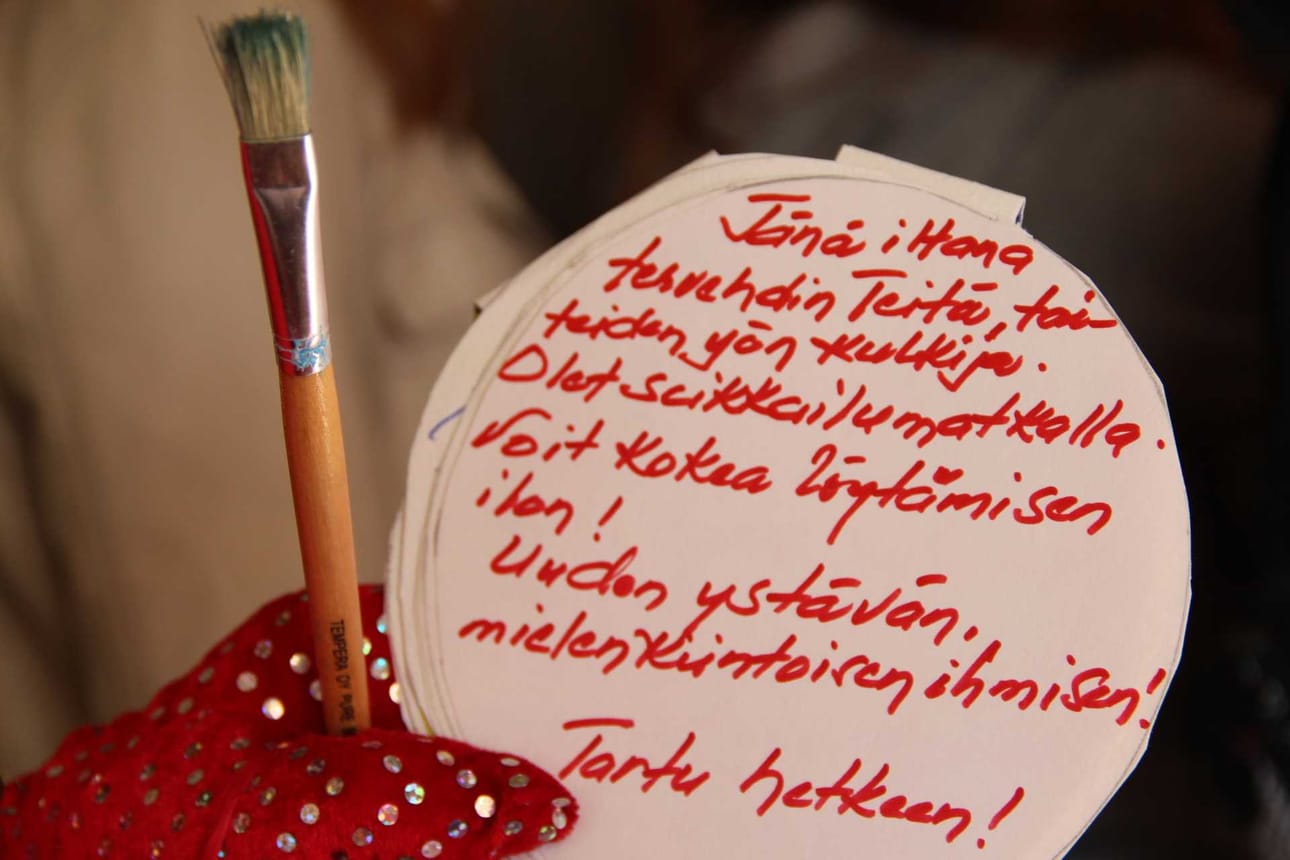 TEMPERA OY PURE
Tänä iltana
tervehdin Teitä, tai-
teiden yön kulkija.
Olet seikkailumatkalla.
Voit kokea löytämisen
ilon!
Uuden ystävän,
mielenkiintoisen ihmisen!
Tartu hetkeen!